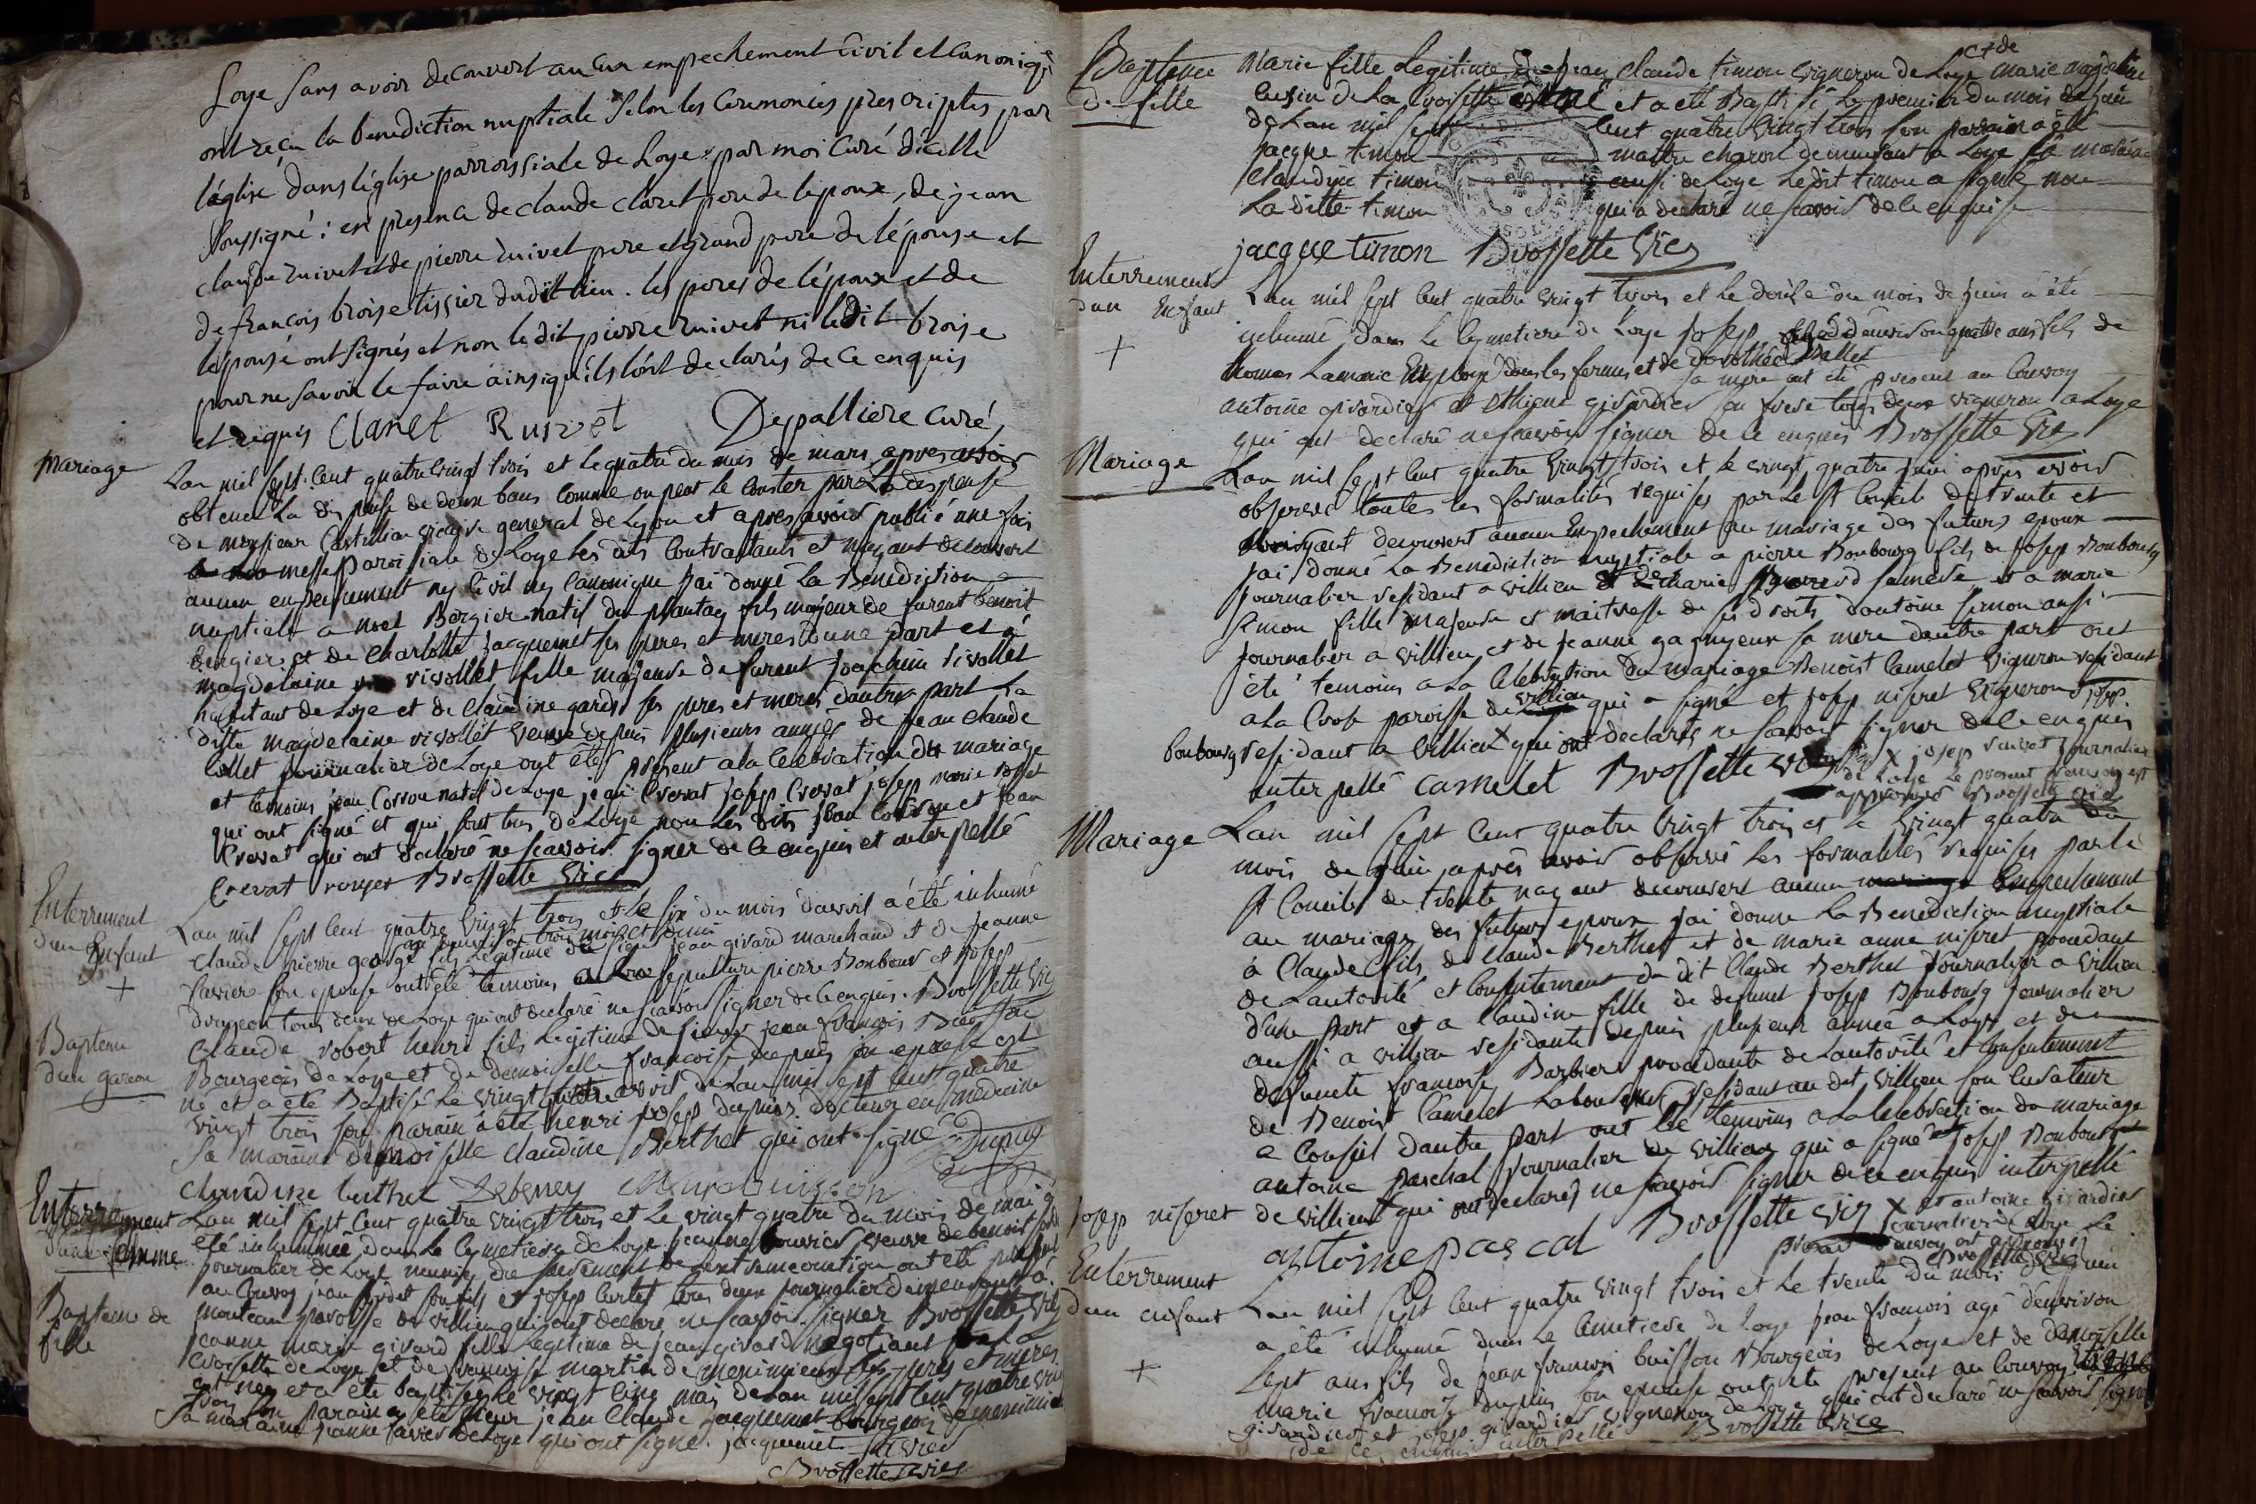 Loye sans avoir decouvert aucun empechement civil et canoniqe
ont reçu la benediction nuptiale selon les ceremonies prescriptes par
l'église dans l'église parroissiale de Loye par moi curé d'icelle
soussigné : en presence de claude claret pere de l'époux, de jean
claude ruivet et de pierre ruivet pere et grand pere de l'épouse et
de françois broise tissier dudit lieu. les peres de l'époux et de
l'épouse ont signés et non le dit pierre ruivet ni ledit broise
pour ne savoir le faire ainsi qu'ils l'ont declarés de ce enquis
et requis Claret Ruivet Depalliere curé
Mariage
Lan mil sept cent quatre vingt trois et le quatre du mois de mars apres avoir
obtenu La dis pense de deux bans comme on peut le Conster par La dispense
de monsieur Castillon vicaire general de Lyon et apres avoir publié une fois
messe paroissiale de Loye les dits Contractants et nayant decouvert
aucun enpechement ny Civil ny Canonique jai donné La Benediction
nuptiale a noel Bergier natif du plantay fils majeur de furent benoit
bergier et de Charlotte jacquemet ses peres et meres dune part et a
magdelaine rivollet fille majeure de furent joachim rivollet
habitant de Loye et de Claudine garde ses peres et meres dautre part La
ditte magdelaine rivollet veuve depuis plusieurs années de jean claude
Collet journalier de Loye ont étés present a la Celebration du mariage
et temoins jean Corron natif de Loye jean Crevat josep Crevat josep marie rosset
qui ont signé et qui sont tous de Loye non Les dits jean Corron et jean
Crevat qui ont declaré ne scavoir signer de ce enquis et interpellé
Crevat royer Brossette vic
Enterrement
dun Enfant
+
Lan mil sept cent quatre vingt trois et le six du mois davril a été inhumé
agé denviron trois mois et demi
Claude pierre george fils Legitime de sieur jean girard marchand et de jeanne
favier son epouse ont été temoins a La sepulture pierre Bonbour et josep
drujeon tous deux de Loye qui ont declaré ne scavoir signer de ce enquis. Brossette vic
Bapteme
dun garcon
Claude robert henri fils Legitime de sieur jean francois Buisson
Bourgeois de Loye et de demoiselle francoise dupuis son epouse est
né et a été Baptisé Le vingt quatre avril de Lan mil sept cent quatre
vingt trois son parain a été henri josep dupuis docteur en medecine
Sa maraine demoiselle Claudine Berthet qui ont signé Dupuy
claudine berthet Debeney
Enterrement
dune femme
Lan mil sept cent quatre vingt trois et le vingt quatre du mois de mai a
été inhummée dans Le Cymetiere de Loye jeanne bouvier veuve de benoit
journalier de Loye munie du sacrement de Lextremeonction ont été present
au Convoy jean son fils et josep Curtet tous deux journaliers demeurant a
monteau paroisse de villieu qui ont declaré ne scavoir signer Brossette vic
Bapteme de
fille
jeanne marie girard fille Legitime de jean girard negotiant sur La
Croisette de Loye et de francoise martin de meximieux ses peres et meres
est née et a été baptisée Le vingt cinq mai de Lan mil sept cent quatre vingt
trois son parain a été sieur jean Claude jacquemet bourgeois de meximieux
Sa maraine jeanne favier de Loye qui ont signé. jacquemet favier
Brossette vic
Bapteme
de fille
Marie fille Legitime de jean claude timon vigneron de Loye et de marie magdelaine
Cusin de La Croisette est né et a été Baptisé Le premier du mois de juin
de Lan mil sept cent quatre vingt trois son parrain a été
jacque timon maitre charon demeurant a Loye sa maraine
Claudine timon aussi de Loye Ledit timon a signé non
La ditte timon qui a declaré ne scavoir de ce enquise
jacque timon Brossette vic
Enterrement
dun Enfant
+
Lan mil sept cent quatre vingt trois et Le douze du mois de juin a été
inhumé dans Le Cymetiere de Loye josep agé denviron quatre ans fils de
thomas Lamarie Employé dans les fermes et de dorothée Ballet
sa mere ont été present au Convoy
antoine girardier et ethiene girardier son frere tous deux vigneron a Loye
qui ont declaré ne scavoir signer de ce enquis Brossette vic
Mariage
Lan mil sept cent quatre vingt trois et le vingt quatre juin apres avoir
observé toutes les formalités requises par Le St Concile de trente et
nayant decouvert aucun Enpechement au mariage des futurs epoux
jai donné La Benediction nuptiale a pierre Bonbourg fils de josep Bonbourg
journalier residant a villieu et de marie sa mere et a marie
simon fille majeure et maitresse de ses droits dantoine simon aussi
journalier a villieu et de jeanne gagnyeux sa mere dautre part ont
été temoins a La Celebration du mariage Benoist Camelet vigneron residant
a la Crose paroisse de villieu qui a signé et josep niseret vigneron X josep
bonbourg residant a villieu X qui ont declarés ne scavoir signer de ce enquis
interpellé camelet Brossette vic X josep journalier
de Loye Le present renvoy est
approuvé Brossette vic
Mariage
Lan mil sept cent quatre vingt trois et le vingt quatre du
mois de juin apres avoir observé Les formalités requises par le
St Concile de trente nayant decouvert aucun mariage Enpechement
au mariage des futurs epoux jai donné La Benediction nuptiale
à Claude fils de Claude Berthet et de marie anne niseret procedant
de Lautorité et Consentement du dit Claude Berthet journalier a villieu
dune part et a Claudine fille de defunct josep Bonbourg journalier
aussi a villieu residante depuis plusieurs année a Loye et de
defuncte francoise Barbier procedante de Lautorité et Consentement
de Benoist Camelet Laboureur residant au dit villieu son Curateur
a Conseil dautre part ont été temoins a La Celebration du mariage
antoine paschal journalier de villieu qui a signé et josep Bonbourg
josep niseret
de villieu qui ont declarés ne scavoir signer de ce enquis interpellé
antoine pascal Brossette vic X et antoine girardier
journalier a Loye Le
present renvoy est approuvé
Brossette vic
Enterrement
dun enfant
+
Lan mil sept cent quatre vingt trois et Le trente du mois de juin
a été inhumé dans Le Cimetiere de Loye jean francois agé denviron
sept ans fils de jean francois buisson Bourgeois de Loye et de demoiselle
marie francoise dupuis son epouse ont été present au Convoy
girardier et josep girardier vigneron de Loye qui ont declaré ne scavoir signer
de ce enquis interpellé Brossette vice